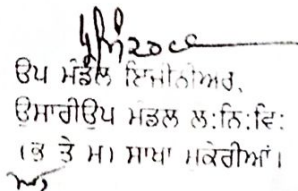 ਉਪ ਮੰਡਲ ਇੰਜੀਨੀਅਰ,
ਉਸਾਰੀਉਪ ਮੰਡਲ ਲ:ਨਿ:ਵਿ:
(ਭ ਤੇ ਮ) ਸਾਖਾ ਮਕੇਰੀਆਂ।